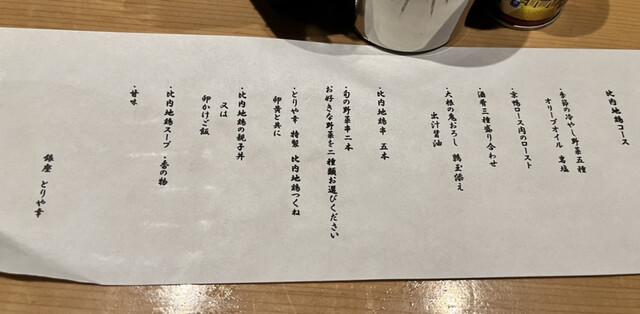 比内地鶏コース
・季節の冷やし野菜五種
オリーブオイル 岩塩
・京鴨ロース肉のロースト
・酒肴三種盛り合わせ
・大根の鬼おろし 鶉玉添え
出汁醤油
・比内地鶏串 五本
・旬の野菜串二本
お好きな野菜を二種類お選びください
・とりや幸 特製 比内地鶏つくね
卵黄と共に
・比内地鶏の親子丼
又は
卵かけご飯
・比内地鶏スープ ・香の物
・甘味
銀座 とりや幸